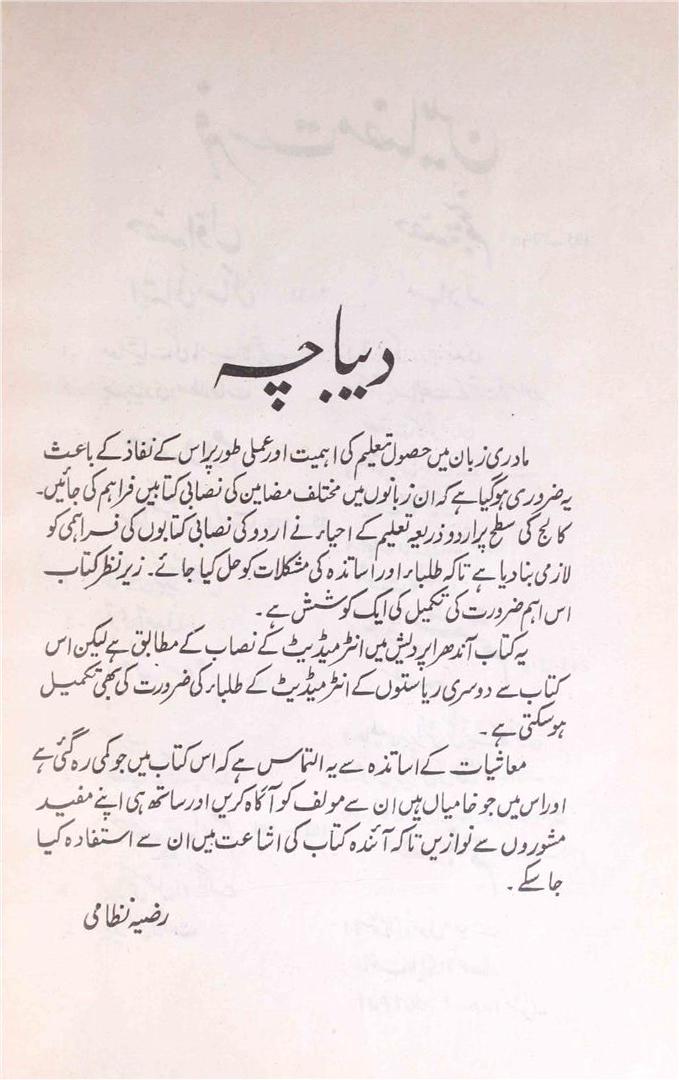 دیباچہ
مادری زبان میں حصول تعلیم کی اہمیت اور عملی طور پر اس کے نفاذ کے باعث
یہ ضروری ہوگیا ہے کہ ان زبانوں میں مختلف مضامین کی نصابی کتابیں فراہم کی جائیں۔
کالج کی سطح پر اردو ذریعہ تعلیم کے احیاء نے اردو کی نصابی کتابوں کی فراہمی کو
لازمی بنا دیا ہے تاکہ طلباء اور اساتذہ کی مشکلات کو حل کیا جائے۔ زیر نظر کتاب
اس اہم ضرورت کی تکمیل کی ایک کوشش ہے۔
یہ کتاب آندھرا پردیش میں انٹرمیڈیٹ کے نصاب کے مطابق ہے لیکن اس
کتاب سے دوسری ریاستوں کے انٹرمیڈیٹ کے طلباء کی ضرورت کی بھی تکمیل
ہوسکتی ہے۔
معاشیات کے اساتذہ سے یہ التماس ہے کہ اس کتاب میں جو کمی رہ گئی ہے
اور اس میں جو خامیاں ہیں ان سے مولف کو آگاہ کریں اور ساتھ ہی اپنے مفید
مشوروں سے نوازیں تاکہ آئندہ کتاب کی اشاعت میں ان سے استفادہ کیا
جاسکے۔
رضیہ نظامی